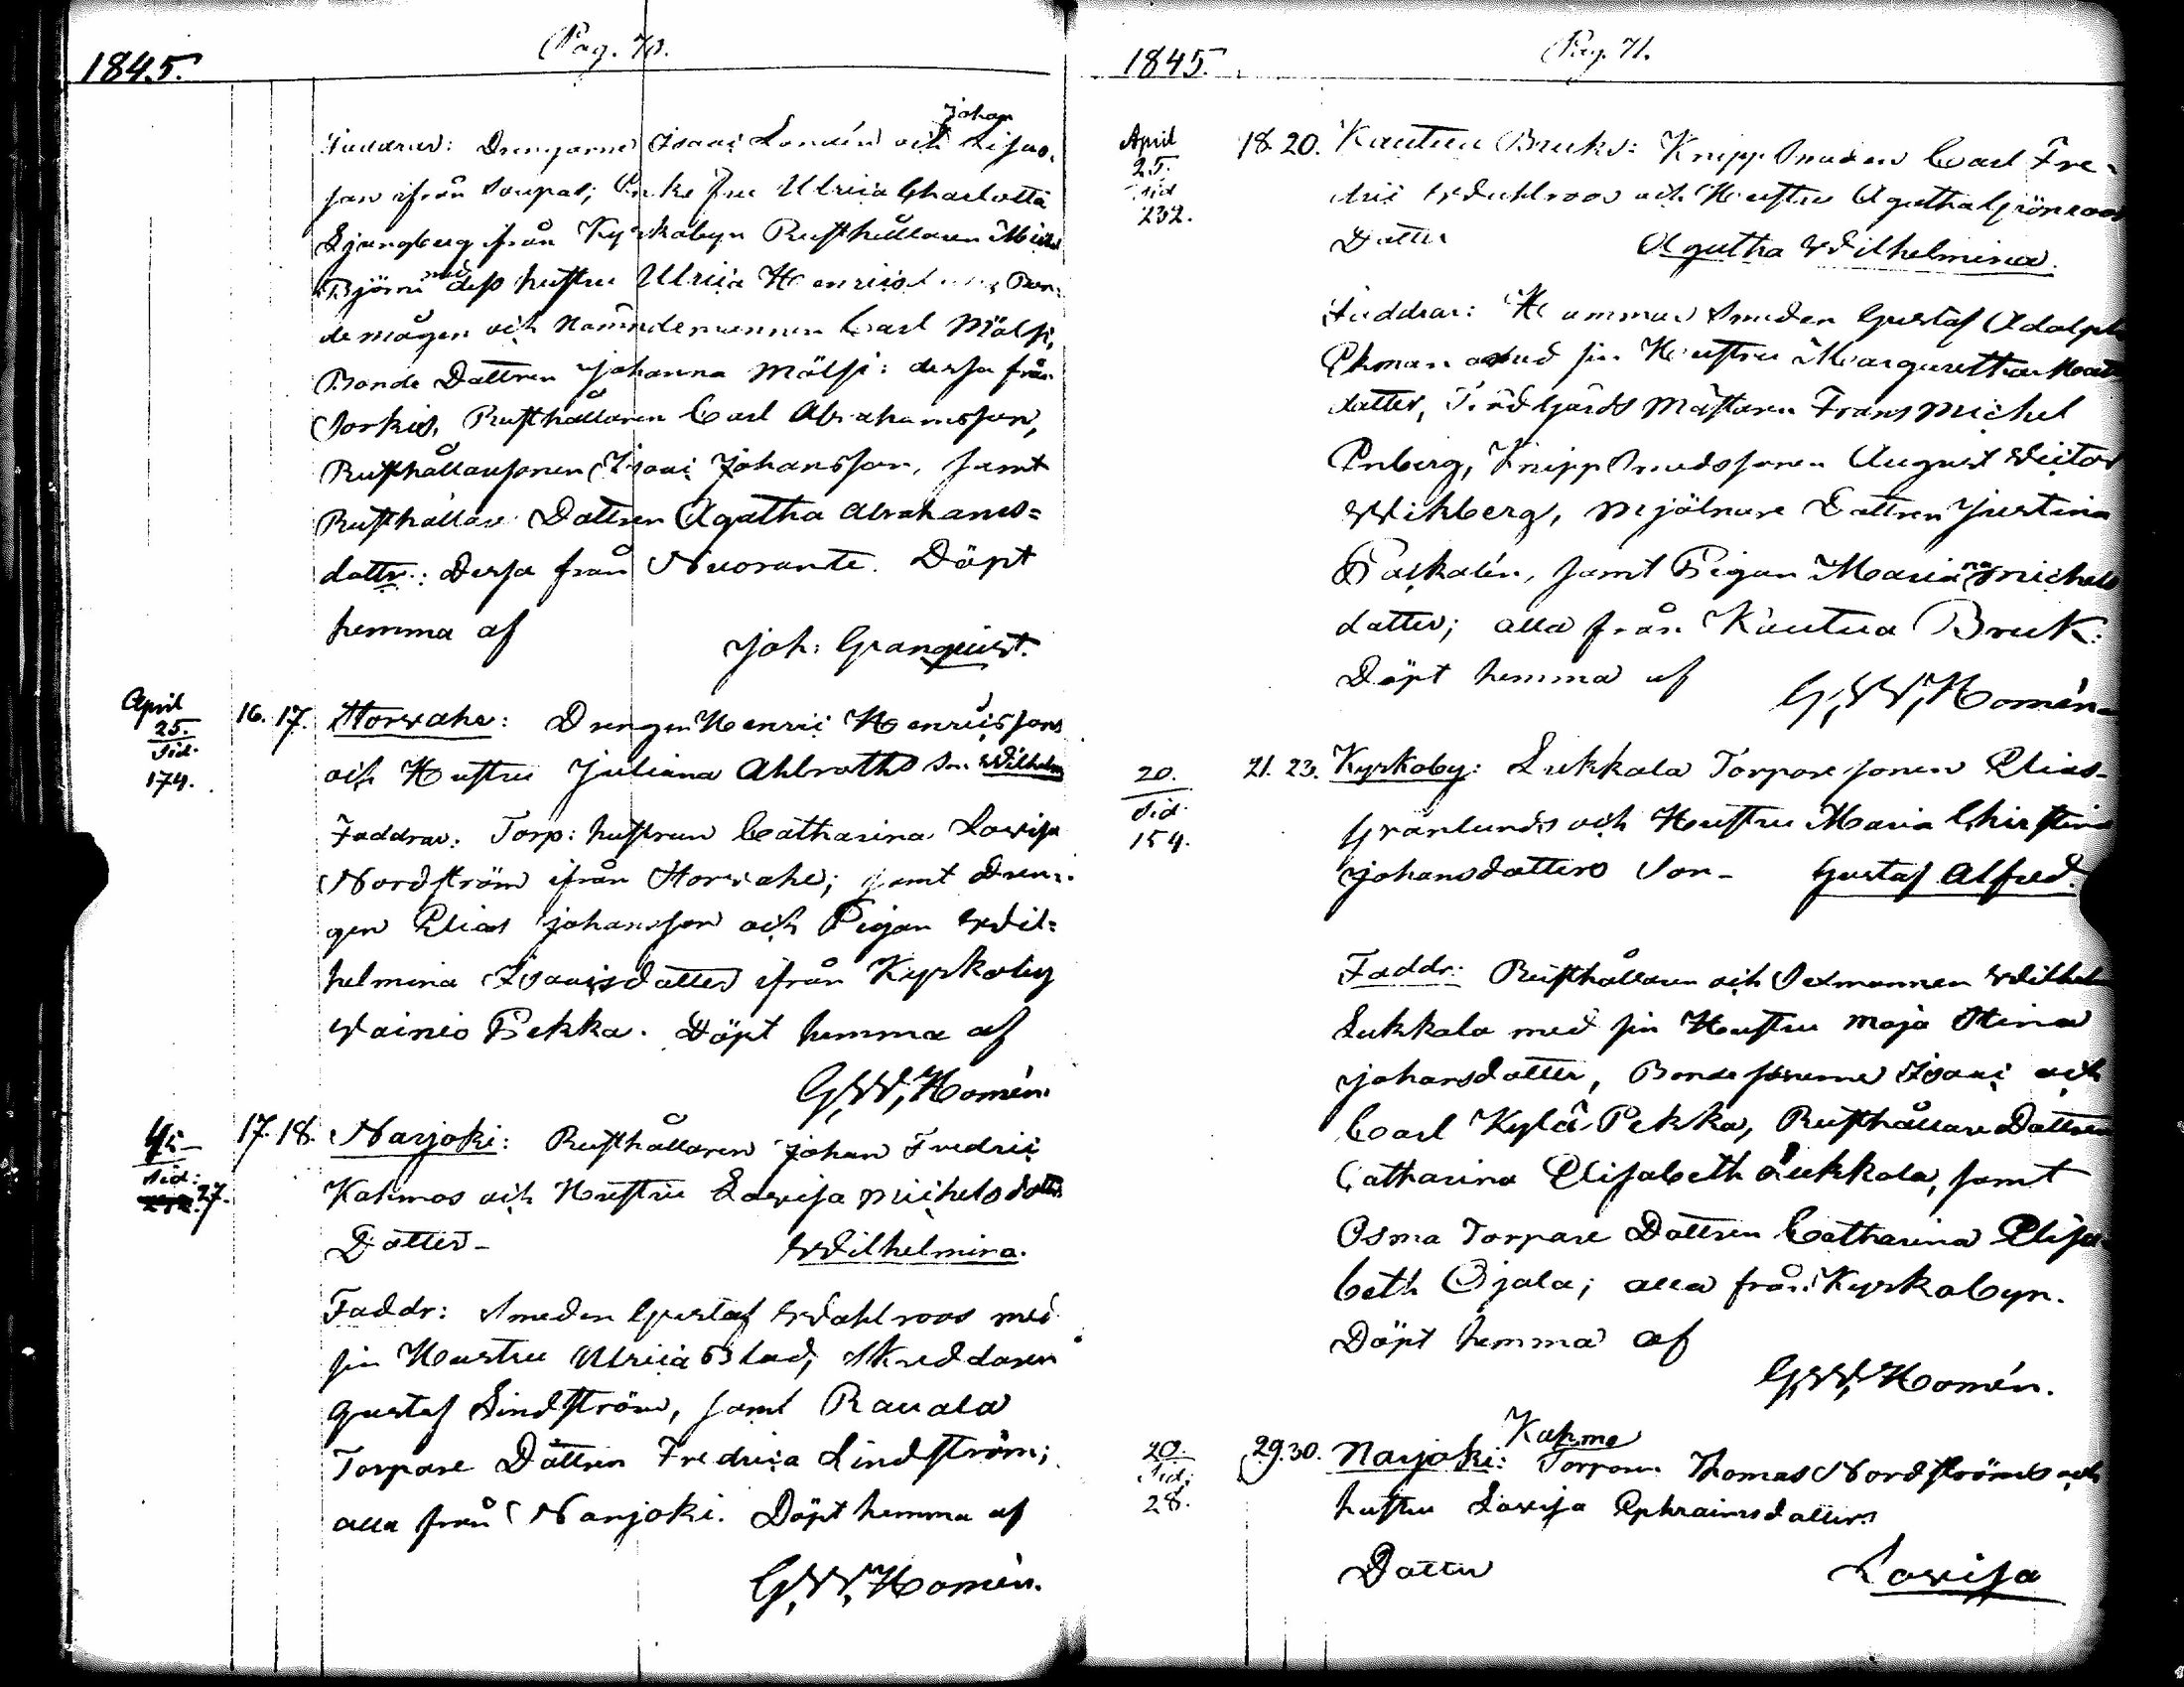 1845.
Pag. 70.
Johan
Faddrar: Drengarne Isaac Londén och
son ifrån Soupas; Enke fru Ulrica Charlotta
Ljungberg ifrån Kyrkobyn Rusthållaren Mich
Björni med dess hustru Ulrica Henrics Bon-
demågen och Nämndemannen Carl Mölsi,
Bonde Dottren Johanna Mölsi: dessa från
Sorkis, Rusthållaren Carl Abrahamsson,
Rusthållaresonen Isaac Johansson, samt
Rusthållare Dottren Agatha Abrahams=
dottr: dessa från Nuorante. Döpt
hemma af
Joh: Granquist.
April
25.
Sid.
174.
16. 17. Storwahe: Drengen Henric Henricssons
och Hustru Juliana Ahlroths Son Wilhelm
Faddrar: Torp: hustrun Catharina Lovisa
Nordström ifrån Storwahe; samt dren-
gen Elias Johansson och Pigan Wil=
helmina Isaacsdotter ifrån Kyrkoby
Wainio Pekka. Döpt hemma af
G,W,Homén.
Sid:
27.
17. 18. Narjoki: Rusthållaren Johan Fredric
Kahmos och Hustru Lovisa Michelsdotters
Dotter-
Wilhelmina.
Faddr: Smeden Gustaf Wahlroos med
sin Hustru Ulrica Blad, Skreddaren
Gustaf Lindström, samt Rauala
Torpare Dottren Fredrica Lindström;
alla från Narjoki. Döpt hemma af
G,W,Homén.
1845.
Pag. 71.
April
25.
Sid
232.
18. 20. Kautua Bruks: Knipp Smeden Carl Fre-
dric Wahlroos och Hustru Agatha Grönroos
Dotter
Agatha Wilhelmina.
Faddrar: Hammar Smeden Gustaf Adolph
Ekman med sin Hustru Margaretha
dotter, Trädgårds Mästaren Frans Michel
Enberg, Knipp Smedssonen August Victor
Wikberg, Mjölnare Dottren Justina
Paskalin, samt Pigan Mariana Michels
dotter; alla från Kautua Bruk:
Döpt hemma af
G,W,Homén.
20.
Sid.
154.
21. 23. Kyrkoby: Lukkala Torpare sonen Elias
Grönlunds och Hustru Maria Christina
Johansdotters Son- Gustaf Alfred.
Faddr: Rusthållaren och Sexmannen Wilhelm
Lukkala med sin Hustru Maja Stina
Johansdotter, Bonde sönerne Isaac och
Carl Kylä-Pekka, Rusthållare Dottren
Catharina Elisabeth Lukkala, samt
Osma Torpare Dottren Catharina Elisa-
beth Ojala; alla från Kyrkobyn.
Döpt hemma af
G,W,Homén.
20.
Sid:
28.
Kahmo
29. 30. Narjoki: Torparn Thomas Nordströms och
hustru Lovisa Ephraimsdotters
Dotter
Lovisa